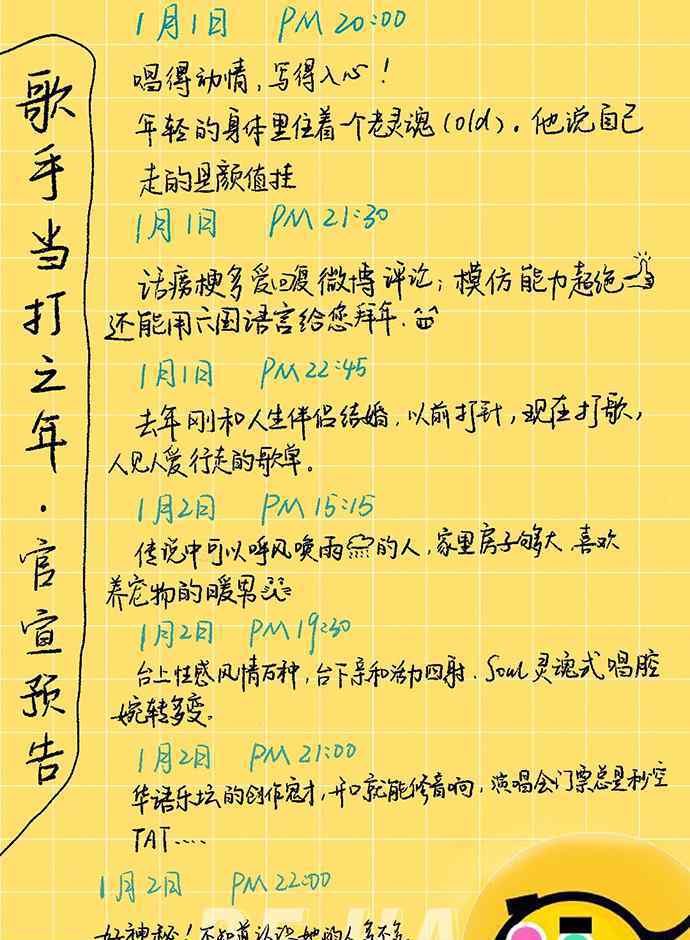 歌手当打之年·官宣预告
1月1日 PM 20:00
唱得动情,写得入心!
年轻的身体里住着一个老灵魂(old)。他说自己
走的是颜值挂
1月1日 PM 21:30
话痨梗多爱回复微博评论;模仿能力超绝
还能用六国语言给您拜年.
1月1日 PM 22:45
去年刚和人生伴侣结婚,以前打针,现在打歌,
人见人爱行走的歌单。
1月2日 PM 15:15
传说中可以呼风唤雨的人,家里房子够大,喜欢
养宠物的暖男
1月2日 PM 19:30
台上性感风情万种,台下亲和活力四射.Soul灵魂式唱腔
婉转多变。
1月2日 PM 21:00
华语乐坛的创作鬼才,开口就能修音响,演唱会门票总是秒空
TAT.....
1月2日 PM 22:00
好神秘!不知道认识她的人多不多